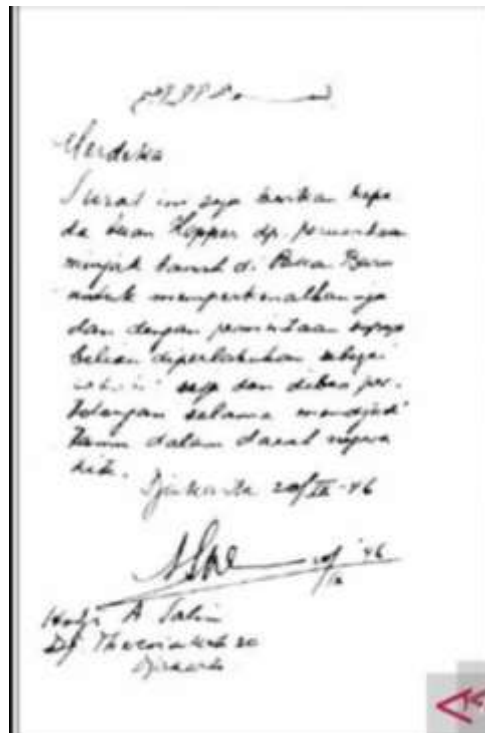 Merdeka
Surat ini saja berikan kepa-
da tuan Hopper dp. perusahaan
minjak tanah di Pakan Baru
untuk memperkenalkannja
dan dengan permintaan supaja
beliau diperlakukan sebagai
saja dan diberi per-
tolongan selama mendjadi
tamu dalam daerah negara
kita.
Djakarta 20/IX-46
46
Hadji A Salim
Dj 20
Djakarta